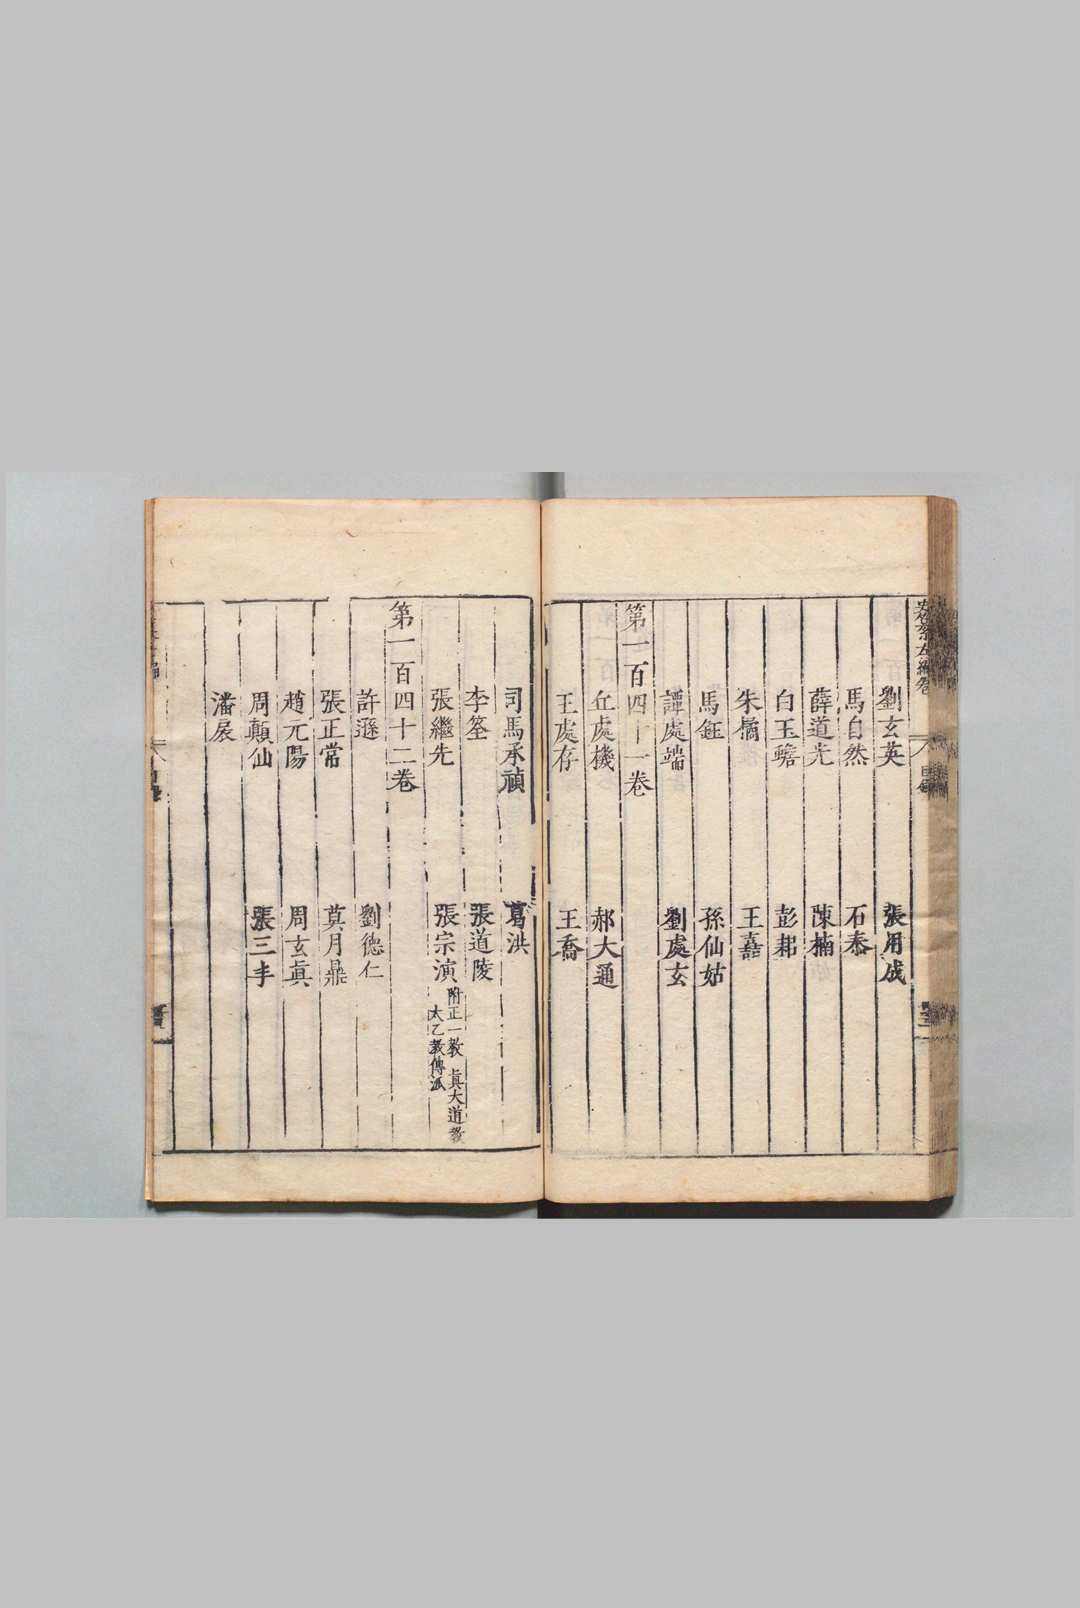 劉玄英 張用成
馬自然 石泰
薛道光 陳楠
白玉蟾 彭耜
朱橘 王嚞
馬鈺 孫仙姑
譚處端 劉處玄
第一百四十一卷
丘處機 郝大通
王處存 王喬
司馬承禎 葛洪
李筌 張道陵
張繼先 張宗演 附正一教 眞大道教
太乙教傳派
第一百四十二卷
許遜 劉德仁
張正常 莫月鼎
趙元陽 周玄眞
周顛仙 張三丰
潘扆